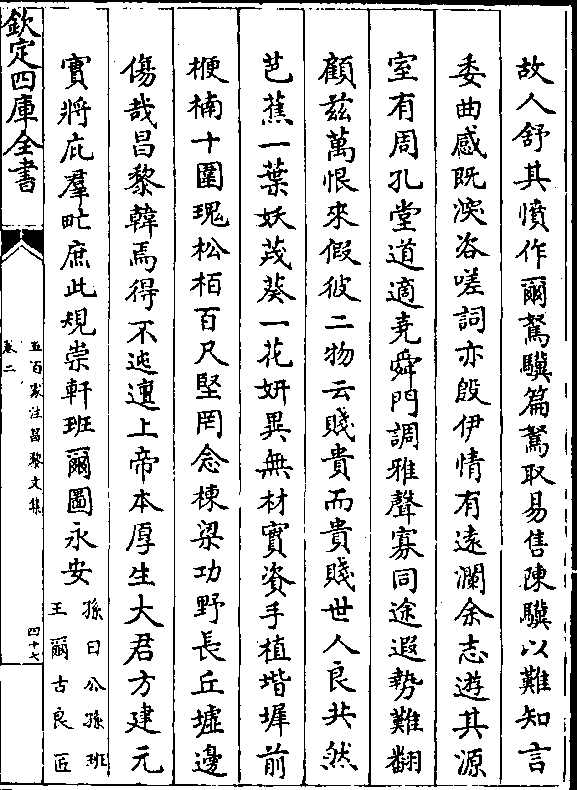 故人舒其憤作爾駑驥篇駑取易售陳驥以難知言
委曲感既深咨嗟詞亦殷伊情有遠瀾余志遊其源
室有周孔堂道適堯舜門調雅聲寡同途遐勢難翻
顧兹萬恨來假彼二物云賤貴而貴賤世人良共然
芭蕉一葉妖茂葵一花妍異無材實資手植堦墀前
楩楠十圍瑰松栢百尺堅罔念棟梁功野長丘墟邊
傷哉昌黎韓焉得不迍邅上帝本厚生大君方建元
實將庇羣甿庶此規崇軒班爾圖永安
孫曰公孫班
王爾古良匠
欽定四庫全書
五百家注昌黎文集
卷二
四十七